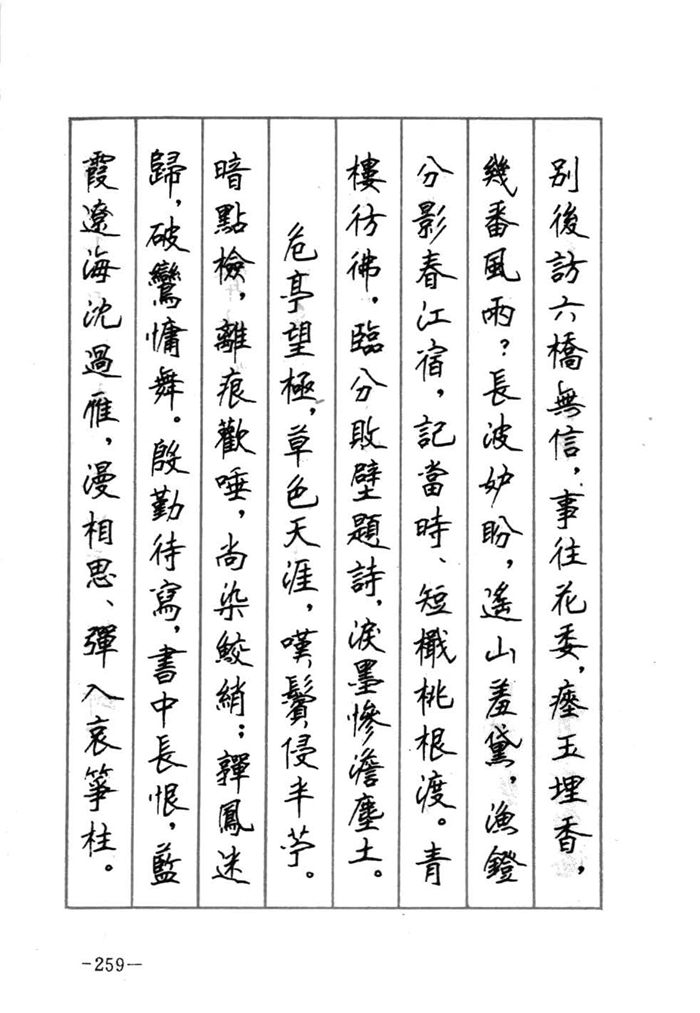 別後訪六橋無信，事往花委，瘞玉埋香，
幾番風雨？長波妒盼，遙山羞黛，漁鐙
分影春江宿，記當時、短檝桃根渡。青
樓彷彿，臨分敗壁題詩，淚墨慘澹塵土。
危亭望極，草色天涯，嘆鬢侵半苧。
暗點檢，離痕歡唾，尚染鮫綃；嚲鳳迷
歸，破鸞慵舞。殷勤待寫，書中長恨，藍
霞遼海沈過雁，漫相思、彈入哀箏柱。
-259-